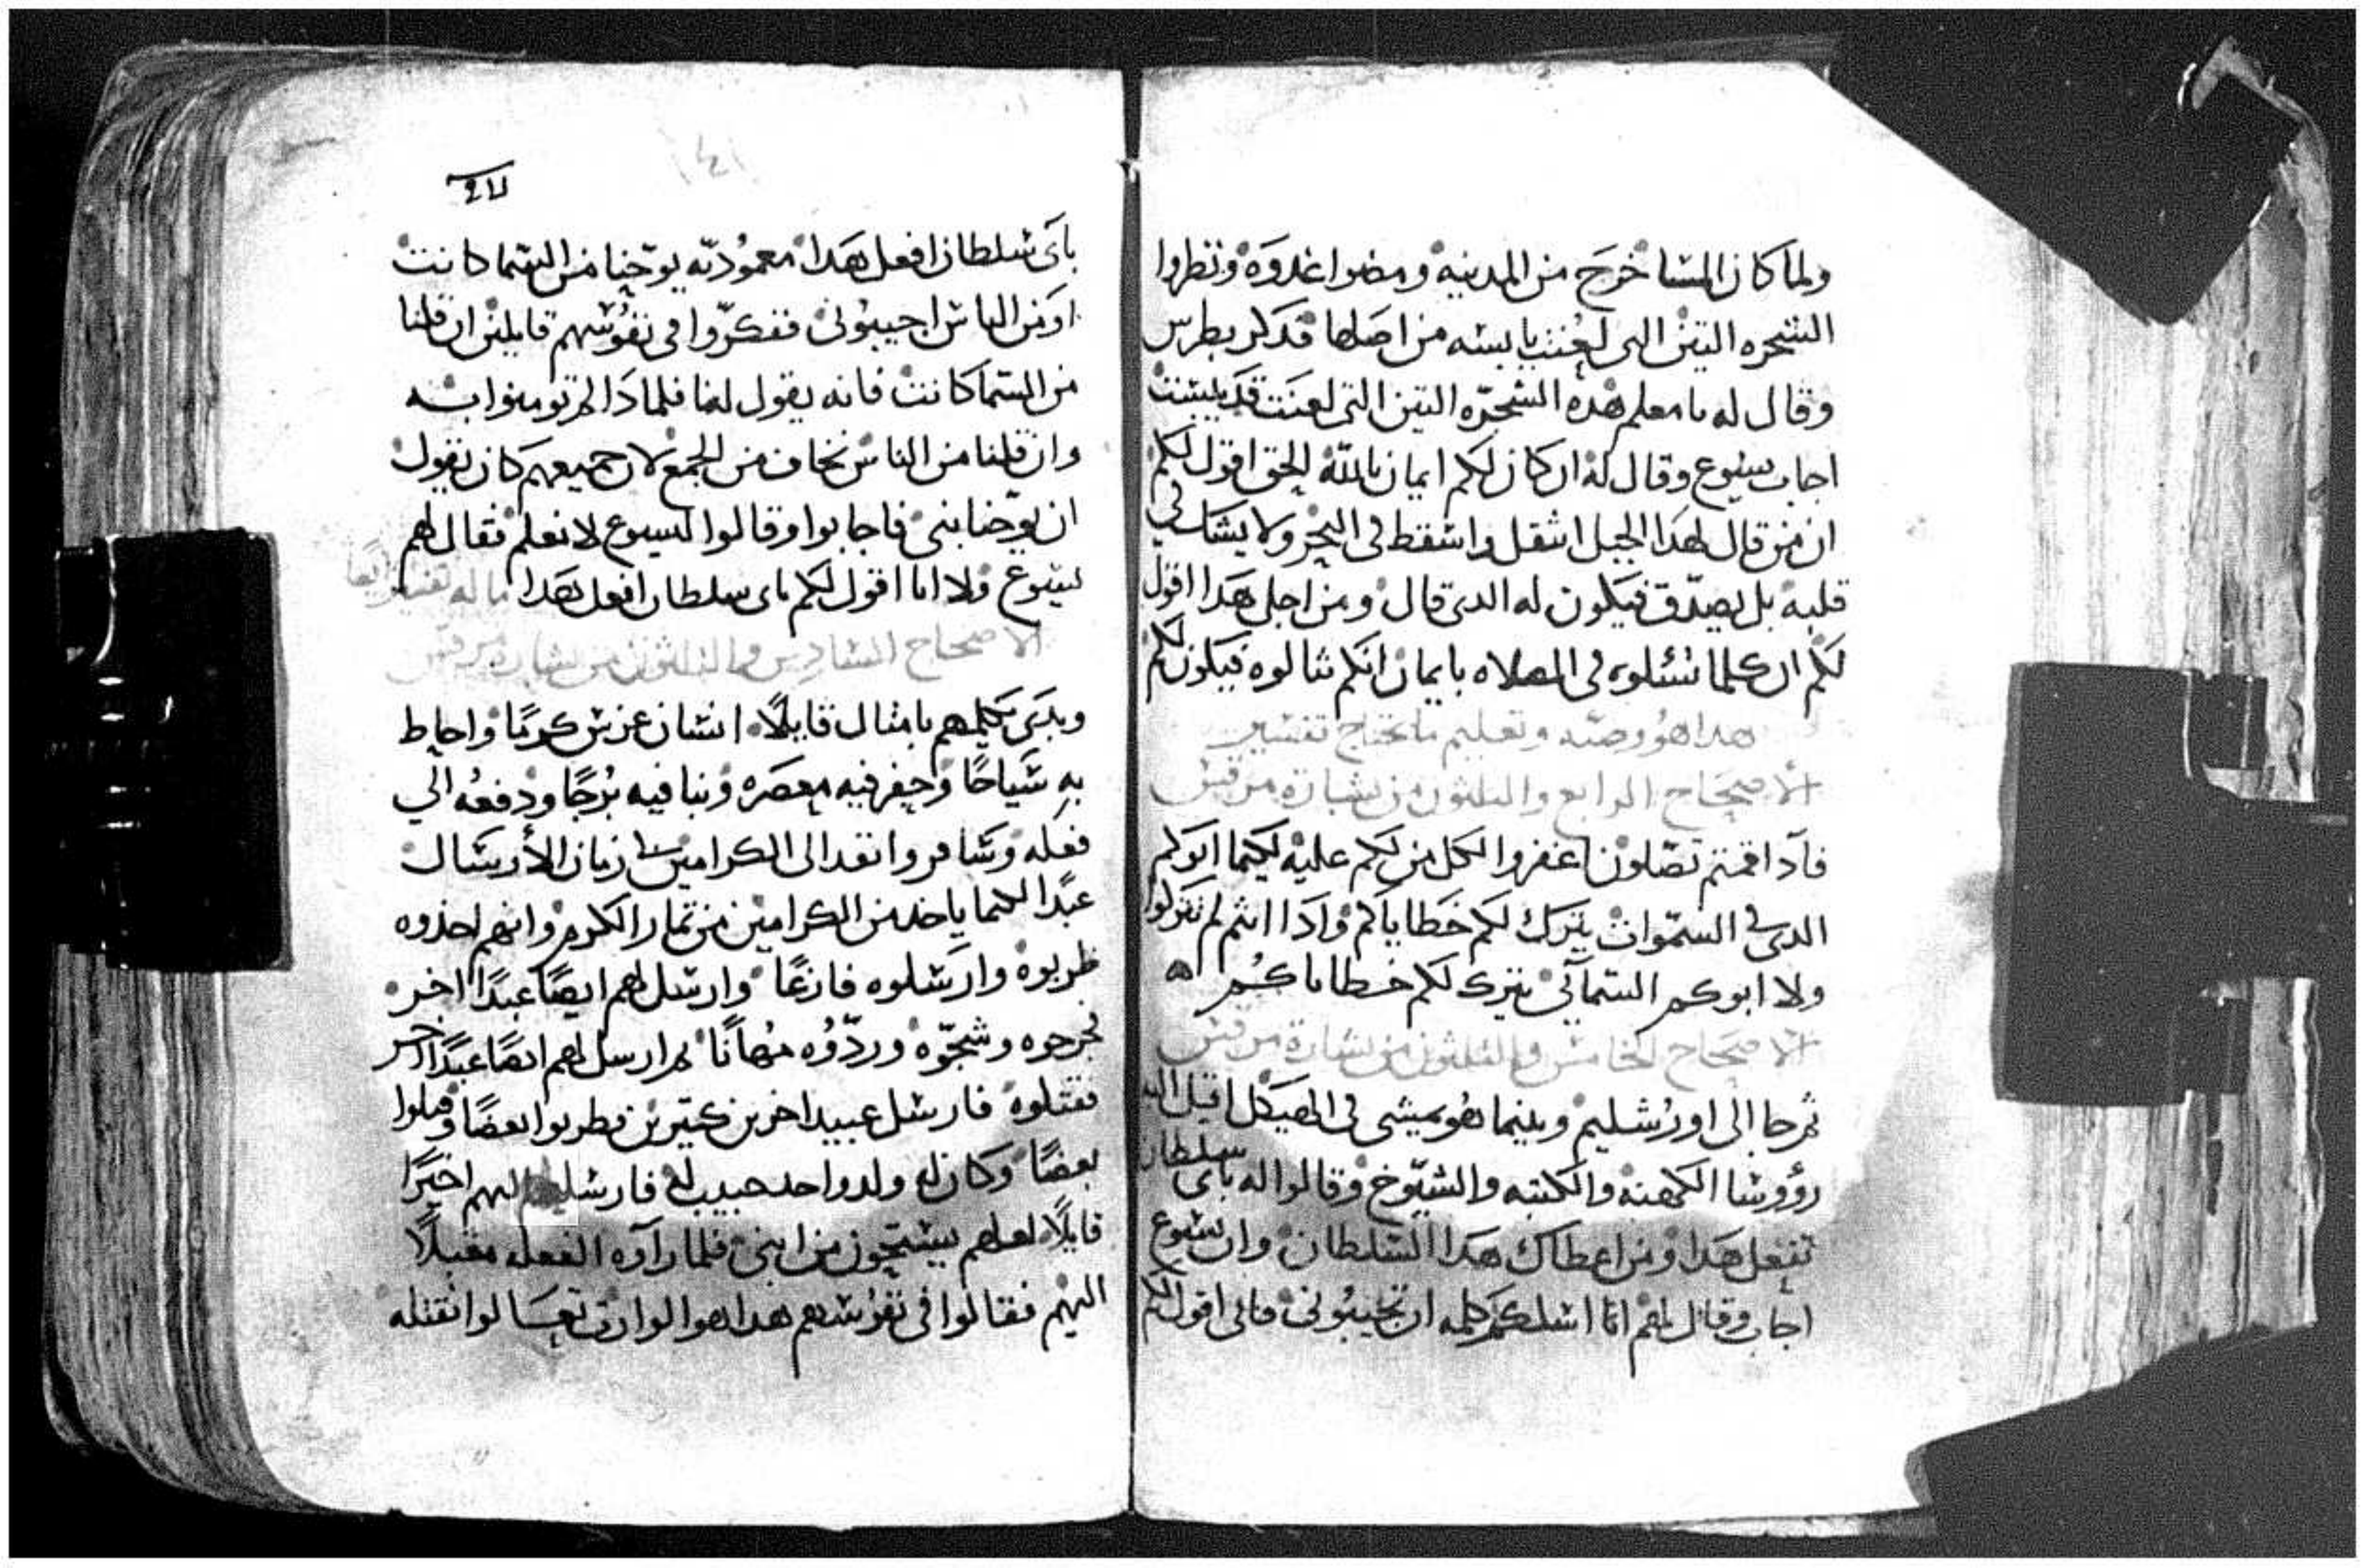 ولما كان المسا خرج من المدينه ومضوا غدوه ونظروا
الشجره التين التى لعنت يابسه من اصلها فدكر بطرس
وقال له يا معلم هده الشجره التين التى لعنت قد يبست
اجاب يسوع وقال له ان كان لكم ايمان بالله الحق اقول لكم
ان من قال لهدا الجبل انتقل واسقط فى البحر ولا يشك في
قلبه بل يصدّق فيكون له الدى قال ومن اجل هدا اقول
لكم ان كلما تسئلوه فى الصلاه بايمان انكم تنالوه فيكون لكم
هدا هو وصيه وتعليم ما يحتاج تفسير
الاصحاح الرابع والتلتون من بشارة مرقس
فادا اقمتم تصلون اغفروا لكل من لكم عليه لكيما ابوكم
الدى فى السموات يترك لكم خطاياكم وادا انتم لم تتركوا
ولا ابوكم السمآئى يترك لكم خطاياكم
الاصحاح الخامس والتلتون من بشارة مرقس
ثم جا الى اورشليم وبينما هو يمشى فى الهيكل اقبل اليه
رؤوسا الكهنه والكتبه والشيوخ وقالوا له باى سلطان
تفعل هدا ومن اعطاك هدا السلطان وان يسوع
اجاب وقال لهم انا اسلكم كلمه ان تجيبونى فانى اقول لكم
٤١
باى سلطان افعل هدا معموديّه يوحنا من السما كانت
او من الناس اجيبونى ففكّروا فى نفوسهم قايلين ان قلنا
من السما كانت فانه يقول لنا فلمادا لم تومنوا به
وان قلنا من الناس نخاف من الجمع لان جميعهم كان يقول
ان يوحنا نبى فاجابوا وقالوا ليسوع لا نعلم فقال لهم
يسوع ولا انا اقول لكم باى سلطان افعل هدا ما له تفسير ايضا
الاصحاح السادس والتلتون من بشارة مرقس
وبدى يكلمهم بامثال قايلًا انسان غرس كرمًا واحاط
به سياجًا وحفر فيه معصره وبنا فيه برجًا ودفعه الي
فعله وسافر وانفد الى الكرامين فى زمان الأرسال
عبدًا لكيما ياخد من الكرامين من تمار الكرم وانهم اخدوه
ظربوه وارسلوه فارغًا وارسل لهم ايضًا عبدًا اخر
فجرحوه وشجّوه وردّوه مهانًا ثم ارسل لهم ايضًا عبدًا اخر
فقتلوه فارسل عبيدا اخرين كتيرين فظربوا بعضًا وقتلوا
بعضًا وكان له ولد واحد حبيب له فارسله اليهم اخيرًا
قايلًا لعلهم يستحيون من ابنى فلما رآوه الفعله مقبلًا
اليهم فقالوا فى نفوسهم هدا هو الوارث تعالوا نقتله